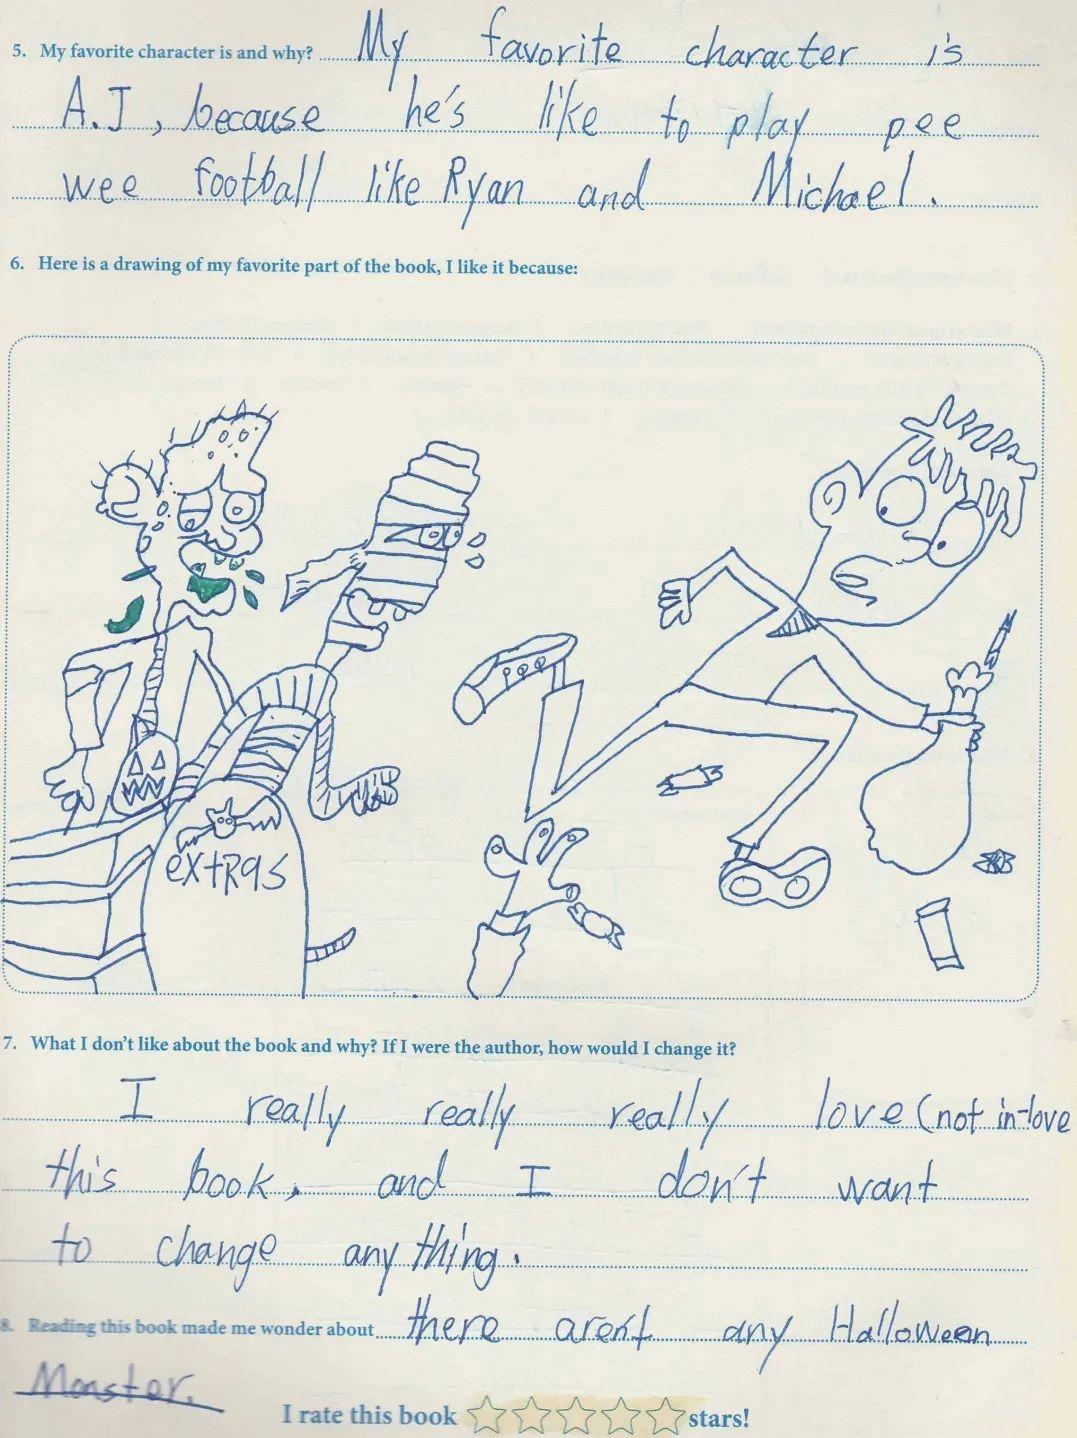 5. My favorite character is and why? My favorite character is
A.J, because he's like to play pee
wee football like Ryan and Michael.
6. Here is a drawing of my favorite part of the book, I like it because:
extRas
7. What I don't like about the book and why? If I were the author, how would I change it?
I really really really love (not in-love
this book, and I don't want
to change any thing.
8. Reading this book made me wonder about there aren't any Halloween
Monster.
I rate this book stars!